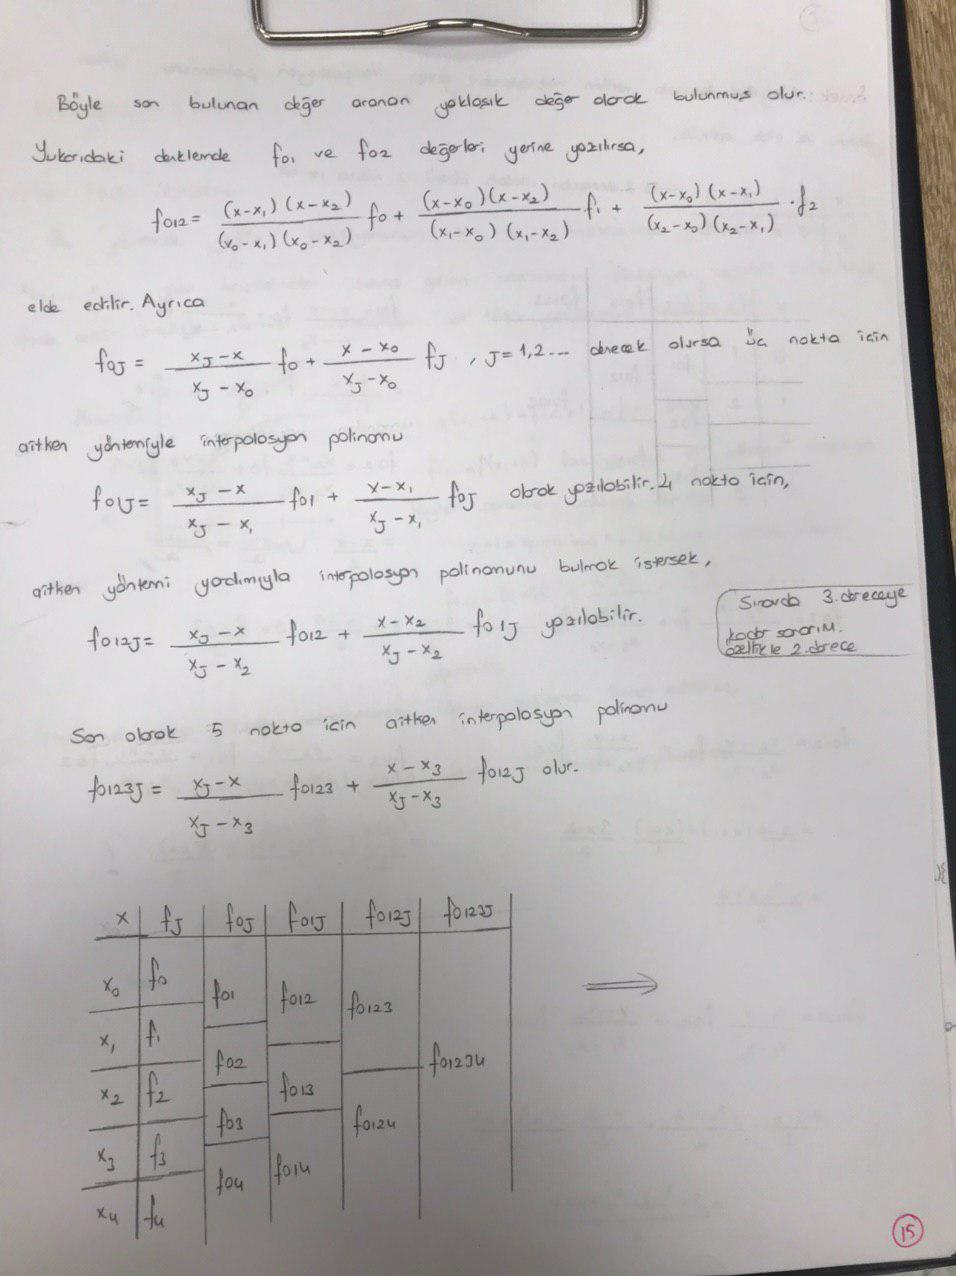 Böyle son bulunan değer aranan yaklaşık değer olarak bulunmuş olur.
Yukarıdaki denklemde f01 ve f02 değerleri yerine yazılırsa,
f012 = (x-x1)(x-x2)/(x0-x1)(x0-x2) f0 + (x-x0)(x-x2)/(x1-x0)(x1-x2) f1 + (x-x0)(x-x1)/(x2-x0)(x2-x1) · f2
elde edilir. Ayrıca
f0J = xJ-x/xJ-x0 f0 + x-x0/xJ-x0 fJ , J=1,2... denecek olursa üç nokta için
aitken yöntemiyle interpolasyon polinomu
f01J = xJ-x/xJ-x1 f01 + x-x1/xJ-x1 f0J olarak yazılabilir. 4 nokta için,
aitken yöntemi yardımıyla interpolasyon polinomunu bulmak istersek,
f012J = xJ-x/xJ-x2 f012 + x-x2/xJ-x2 f01J yazılabilir.
Sınavda 3.dereceye
kadar sorarım.
özellikle 2.derece
Son olarak 5 nokta için aitken interpolasyon polinomu
f0123J = xJ-x/xJ-x3 f0123 + x-x3/xJ-x3 f012J olur.
x fJ f0J f01J f012J f0123J
x0 f0 f01 f012 f0123
x1 f1 ⟹
x2 f2 f02 f013 f01234
x3 f3 f03 f014 f0124
x4 f4 f04
15